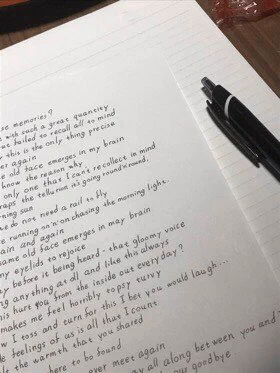 se memories?
with such a great quantity
failed to recall all to mind
this is the only thing precise
er again
e old face emerges in my brain
know the reason why
only one that I can't recollect in mind
haps the tellurion it's going round'n'round.
ning sun
we do not need a rail to fly
e running on 'n' on chasing the morning light.
ain and again
ame old face emerges in may brain
ny eyelids to rejoice
y before it being heard - that gloomy voice
ng any thing at all, and like this always
his hurt you from the inside out every day?
makes me feel horribly topsy turvy
w I toss and turn for this I bet you would laugh...
le feelings of us is all that I count
le the warmth that you shared
here to be found
ever meet again
all along between you and
goodbye.